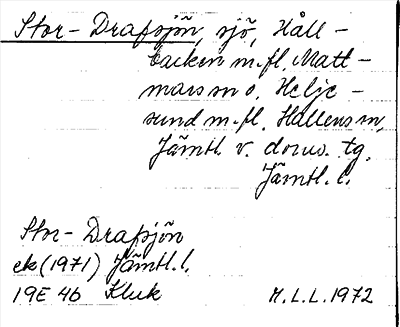 Stor-Drafsjön, sjö, Håll-
backen m.fl. Matt-
mars sn o. Helje-
sund m.fl. Hallens sn,
Jämtl. v. doms. tg.
Jämtl. l.
Stor-Drafsjön
ek (1971) Jämtl. l.
19E 4b Kluk M.L.L. 1972